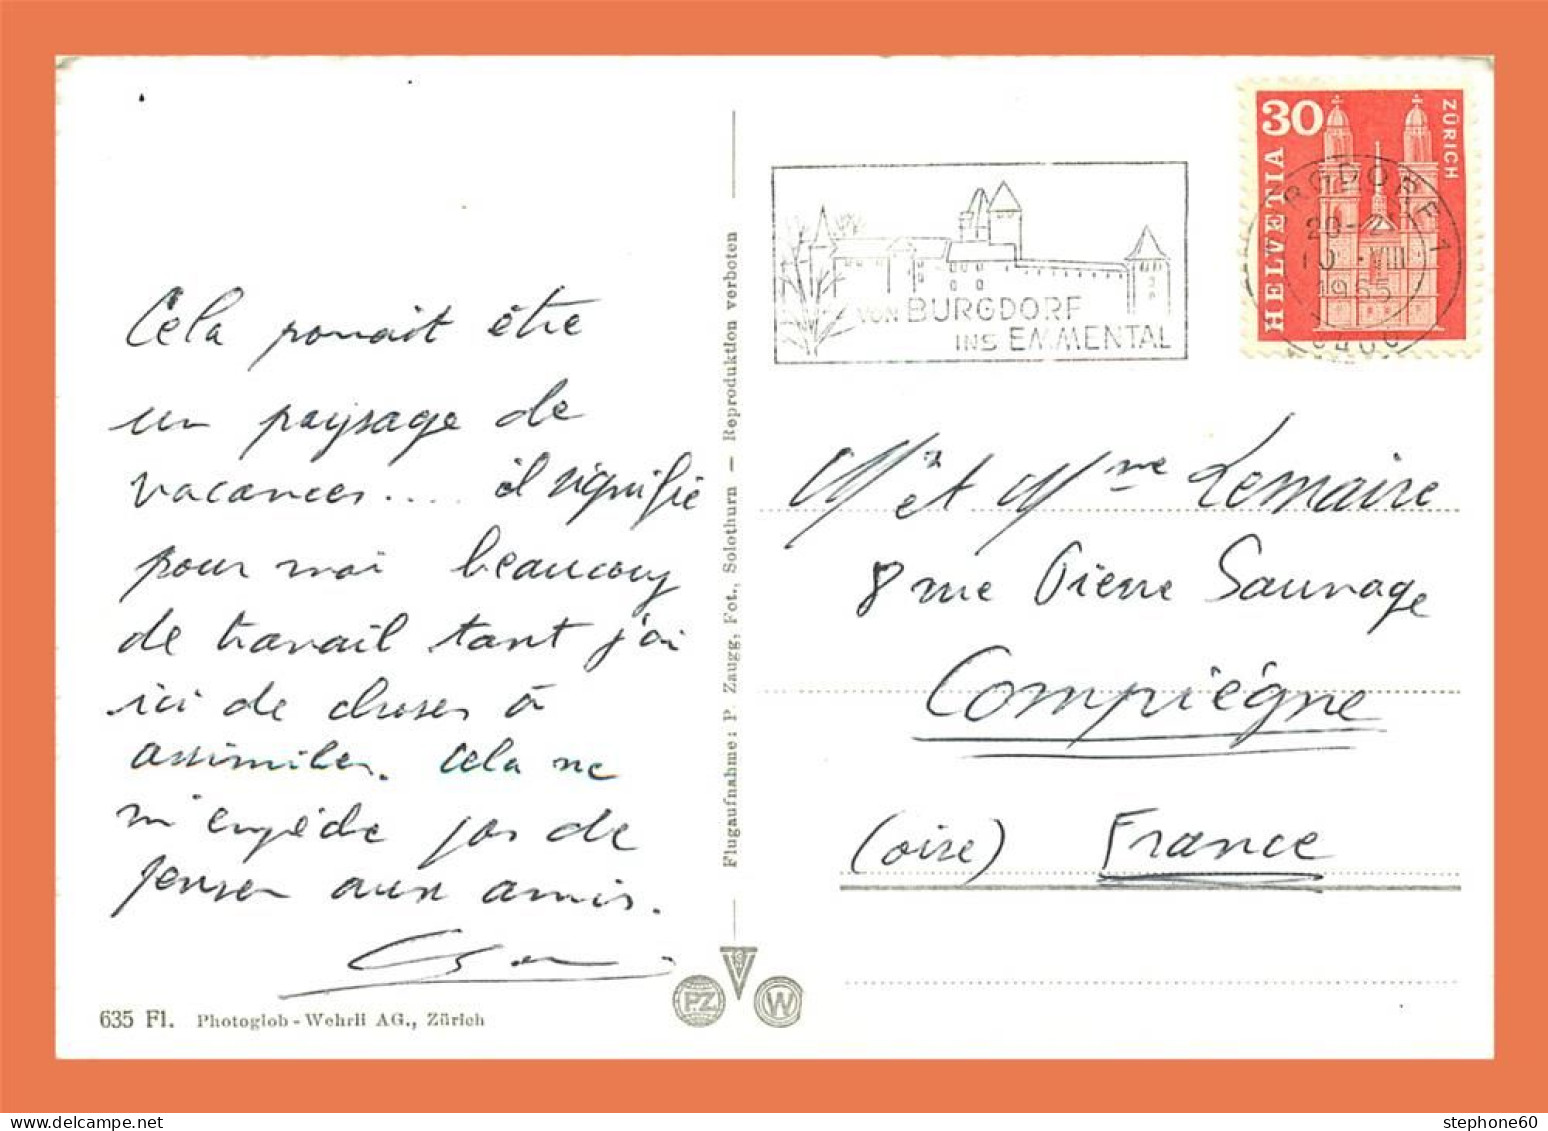 Cela pouvait être
un paysage de
vacances.... il signifie
pour moi beaucoup
de travail tant j'ai
ici de choses à
assimiler. Cela ne
m'empêche pas de
penser aux amis.
635 Fl. Photoglob-Wehrli AG., Zürich
Flugaufnahme: P. Zaugg, Fot., Solothurn — Reproduktion verboten
P.Z.
W
VON BURGDORF
INS EMMENTAL
30
HELVETIA
ZÜRICH
RGDORF 1
VIII
3400
Mr et Mme Lemaire
8 rue Pierre Sauvage
Compiègne
(oise) France
stephone60